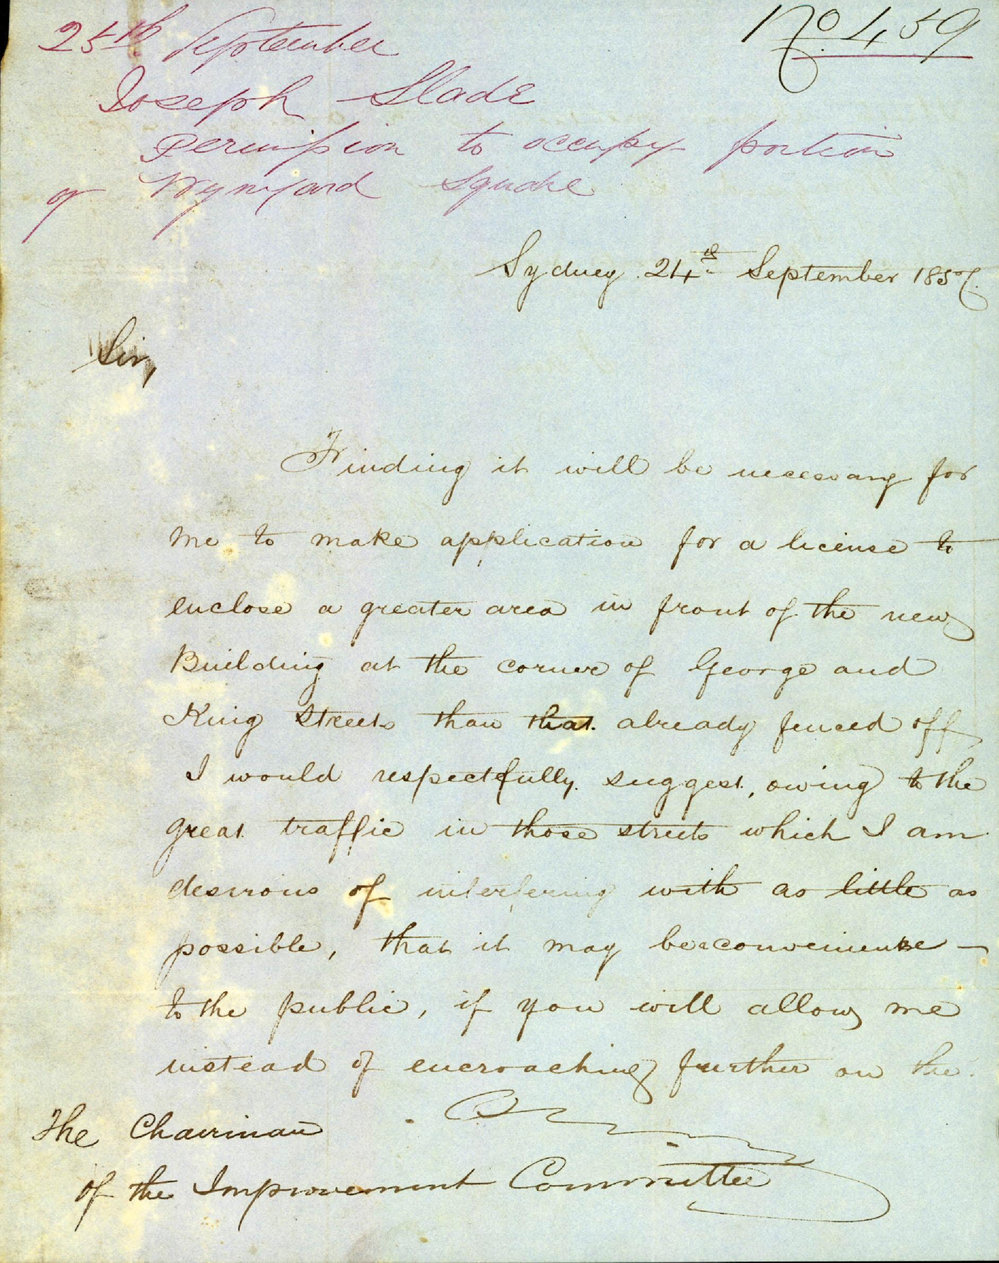 25th September
No. 459
Joseph Slade
Permission to occupy portion
of Wynyard Square
Sydney 24th September 1857.
Sir,
Finding it will be necessary for
me to make application for a license to
enclose a greater area in front of the new
Building at the corner of George and
King Streets than that already fenced off
I would respectfully suggest, owing to the
great traffic in those streets which I am
desirous of interfering with as little as
possible, that it may be a convenience
to the public, if you will allow me
instead of encroaching further on the
The Chairman
of the Improvement Committee